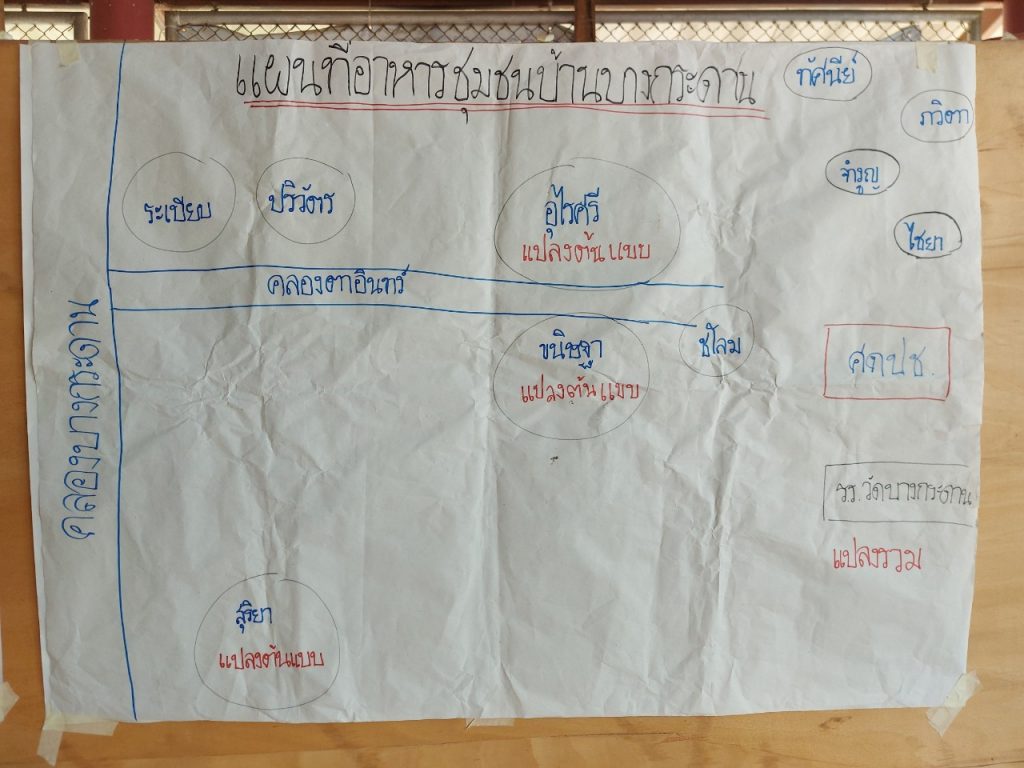 แผนที่อาหารชุมชนบ้านบางกระดาน
ทัศนีย์
ภวิตา
จำรูญ
ไชยา
ระเบียบ
ปริวัตร
อุไรศรี
แปลงต้นแบบ
คลองตาอินทร์
คลองบางกระดาน
ขนิษฐา
แปลงต้นแบบ
ชโลม
ศดปช.
รร.วัดบางกระดาน
แปลงรวม
สุริยา
แปลงต้นแบบ